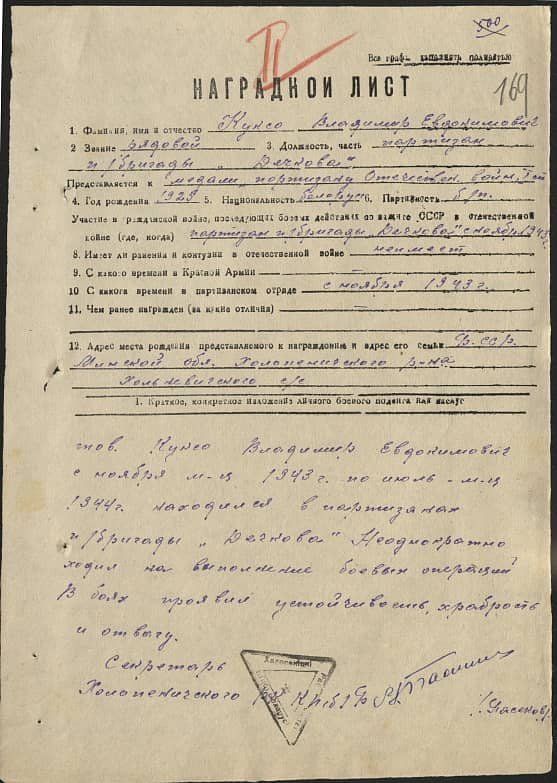 500
II
Все графы заполнять полностью
169
НАГРАДНОЙ ЛИСТ
1. Фамилия, имя и отчество Куксо Владимир Евдокимович
2 Звание рядовой 3. Должность, часть партизан
п/бригады „Дячкова"
Представляется к медали „партизану Отечествен. войны" I ст
4. Год рождения 1929 5. Национальность белорус 6. Партийность б/п.
Участие в гражданской войне, последующих боевых действиях по защите СССР в отечественной
войне (где, когда) партизан п/бригады „Дячкова" с ноября 1943
8. Имеет ли ранения и контузии в отечественной войне неимеет
9. С какого времени в Красной Армии
10 С какога времени в партизанском отряде с ноября 1943 г.
11. Чем ранее награжден (за какие отличия)
12. Адрес места рождения представляемого к награждению и адрес его семьи БССР.
Минской обл. Холопеничского р-на
с/с
1. Краткое, конкретное изложение личного боевого подвига или заслуг
тов. Куксо Владимир Евдокимович
с ноября м-ц 1943 г. по июль-м-ц
1944 г. находился в партизанах
п/бригады „Дячкова" Неоднократно
ходил на выполнение боевых операций
В боях проявил устойчивость, храбрость
и отвагу.
Секретарь
Холопеничского РК КП(б)Б